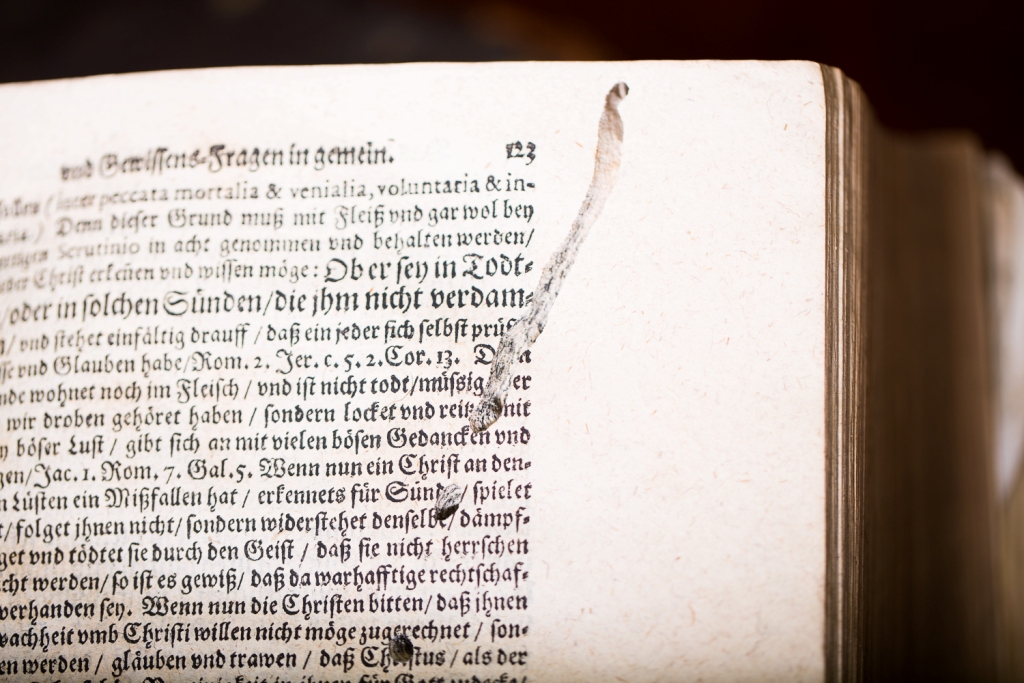 vnd Gewissens-Fragen in gemein. 123
(inter peccata mortalia & venialia, voluntaria & in-
Denn dieser Grund muß mit Fleiß vnd gar wol bey
Scrutinio in acht genommen vnd behalten werden/
Christ erkeñen vnd wissen möge: Ob er sey in Todt-
/oder in solchen Sünden/die jhm nicht verdam-
/vnd stehet einfältig drauff / daß ein jeder sich selbst prüf
vnd Glauben habe/Rom. 2. Jer. c. 5. 2. Cor. 13.
wohnet noch im Fleisch / vnd ist nicht todt/müssig
wir droben gehöret haben / sondern locket vnd mit
böser Lust / gibt sich an mit vielen bösen Gedancken vnd
/Jac. 1. Rom. 7. Gal. 5. Wenn nun ein Christ an den-
Lüsten ein Mißfallen hat / erkennets für Sünde/ spielet
/folget jhnen nicht/ sondern widerstehet denselbē/ dämpf-
get vnd tödtet sie durch den Geist / daß sie nicht herrschen
werden/ so ist es gewiß/ daß da warhafftige rechtschaf-
verhanden sey. Wenn nun die Christen bitten/ daß jhnen
vmb Christi willen nicht möge zugerechnet / son-
werden / gläuben vnd trawen / daß Christus / als der
in jhnen für Gott